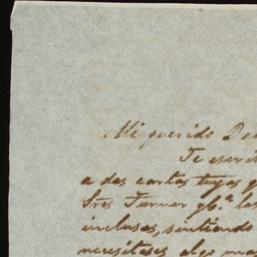 Mi querido De
Te escri
a dos cartas tuyas q
Sres Turner y Cª las
inclusas, sintiendo
necesitases algo ma